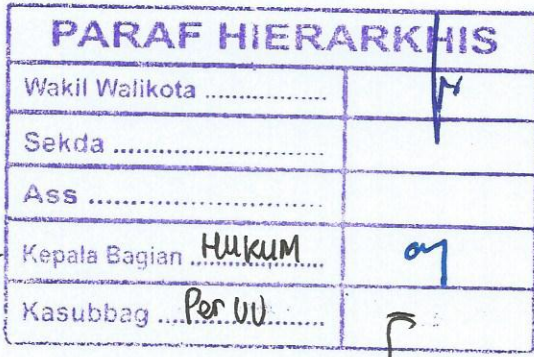 PARAF HIERARKHIS
Wakil Walikota ..................
Sekda ..............................
Ass .................................
Kepala Bagian HUKUM
Kasubbag Per UU